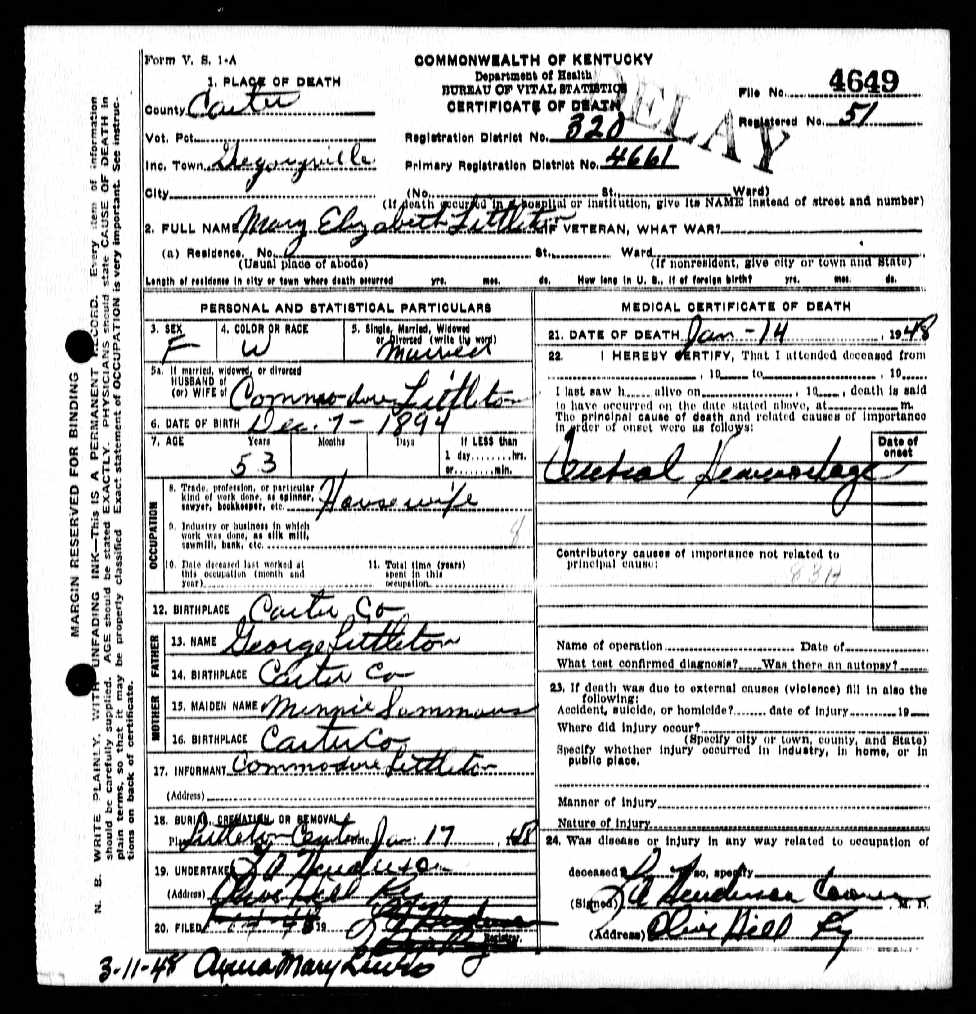 Form V. S. 1-A
COMMONWEALTH OF KENTUCKY
Department of Health
BUREAU OF VITAL STATISTICS
CERTIFICATE OF DEATH
DELAY
File No. 4649
Registered No. 51
1. PLACE OF DEATH
County Carter
Vot. Pct.
Inc. Town
City
Registration District No. 320
Primary Registration District No. 4661
(No. St. Ward)
(If death occurred in a hospital or institution, give its NAME instead of street and number)
2. FULL NAME Mary Elizabeth Littleton IF VETERAN, WHAT WAR?
(a) Residence. No. St. Ward
(Usual place of abode) (If nonresident, give city or town and State)
Length of residence in city or town where death occurred yrs. mos. ds. How long in U. S., if of foreign birth? yrs. mos. ds.
PERSONAL AND STATISTICAL PARTICULARS
3. SEX F
4. COLOR OR RACE W
5. Single, Married, Widowed or Divorced (write the word) Married
5a. If married, widowed, or divorced
HUSBAND of
(or) WIFE of Commodore Littleton
6. DATE OF BIRTH Dec. 7 - 1894
7. AGE Years Months Days If LESS than
53 1 day hrs.
or min.
OCCUPATION
8. Trade, profession, or particular
kind of work done, as spinner,
sawyer, bookkeeper, etc. House wife
9. Industry or business in which
work was done, as silk mill,
sawmill, bank, etc. 8
10. Date deceased last worked at
this occupation (month and
year)
11. Total time (years)
spent in this
occupation
12. BIRTHPLACE Carter Co
FATHER
13. NAME George Littleton
14. BIRTHPLACE Carter Co
MOTHER
15. MAIDEN NAME Minnie Sammons
16. BIRTHPLACE Carter Co
17. INFORMANT Commodore Littleton
(Address)
18. BURIAL, CREMATION, OR REMOVAL
Place Littleton Date Jan 17, 1948
19. UNDERTAKER Henderson
(Address) Olive Hill Ky
20. FILED 19
Registrar
3-11-48 Anna Mary
MEDICAL CERTIFICATE OF DEATH
21. DATE OF DEATH Jan - 14, 1948
22. I HEREBY CERTIFY, That I attended deceased from
, 19 to , 19
I last saw h alive on , 19 , death is said
to have occurred on the date stated above, at m.
The principal cause of death and related causes of importance
in order of onset were as follows:
Date of
onset
Cerebral Hemorrhage
Contributory causes of importance not related to
principal cause:
83A
Name of operation Date of
What test confirmed diagnosis? Was there an autopsy?
23. If death was due to external causes (violence) fill in also the
following:
Accident, suicide, or homicide? date of injury 19
Where did injury occur?
(Specify city or town, county, and State)
Specify whether injury occurred in industry, in home, or in
public place.
Manner of injury
Nature of injury
24. Was disease or injury in any way related to occupation of
deceased? If so, specify
(Signed) Henderson Coroner M. D.
(Address) Olive Hill Ky
MARGIN RESERVED FOR BINDING
N. B. WRITE PLAINLY, WITH UNFADING INK—THIS IS A PERMANENT RECORD. Every item of information
should be carefully supplied. AGE should be stated EXACTLY. PHYSICIANS should state CAUSE OF DEATH in
plain terms, so that it may be properly classified. Exact statement of OCCUPATION is very important. See instruc-
tions on back of certificate.